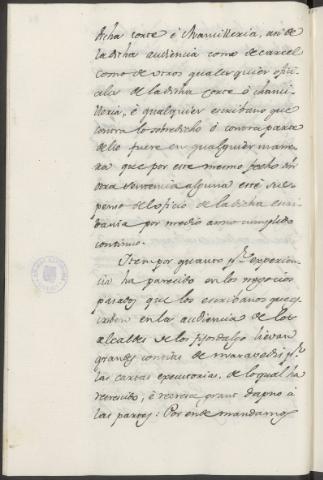 dicha corte é chancilleria, asi de
la dicha audiencia como de carcel
como de otros qualesquier ofici-
ales de la dicha corte ó chanci-
lleria, é qualquier escribano que
contra lo sobredicho ó contra parte
dello fuere en qualquier mane-
ra que por ese mesmo fecho sin
otra sentencia alguna esté sus-
penso del oficio de la dicha escri-
bania por medio anno cumplido
continuo.
Item por quanto por experien-
cia ha parecido en los negocios
pasados que los escribanos que es-
criben en la audiencia de los
alcaldes de los fijosdalgo lievan
grandes contias de maravedis por
las cartas executorias, de lo qual ha
recrecido, é recrece grant dapno á
las partes: Por ende mandamos